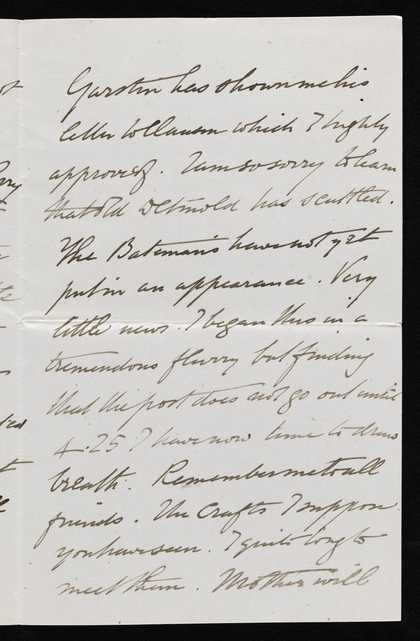 Garstin has shown me his
letter to Clausen which I highly
approve of. I am so sorry to learn
that old Detmold has scuttled.
The Batemans have not yet
put in an appearance. Very
little news. I began this in a
tremendous flurry but finding
that the post does not go out until
4.25 I have now time to draw
breath. Remember me to all
friends. The Crafts I suppose
you have seen. I quite long to
meet them. Mother will